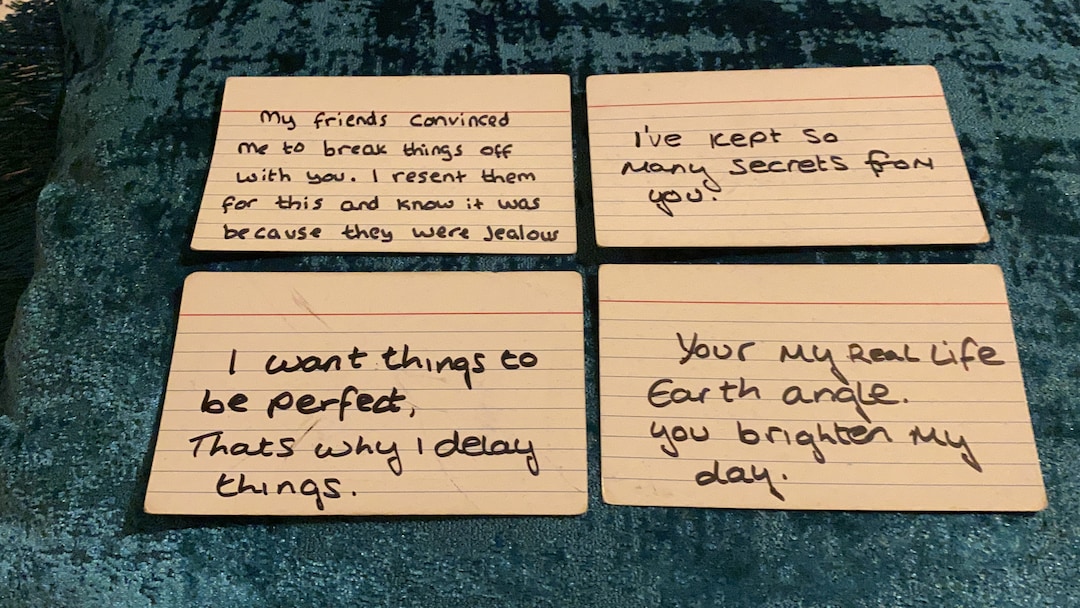 My friends convinced
me to break things off
with you. I resent them
for this and know it was
because they were jealous
I've kept so
many secrets from
you.
I want things to
be perfect,
Thats why I delay
things.
Your my Real Life
Earth angle.
you brighten my
day.